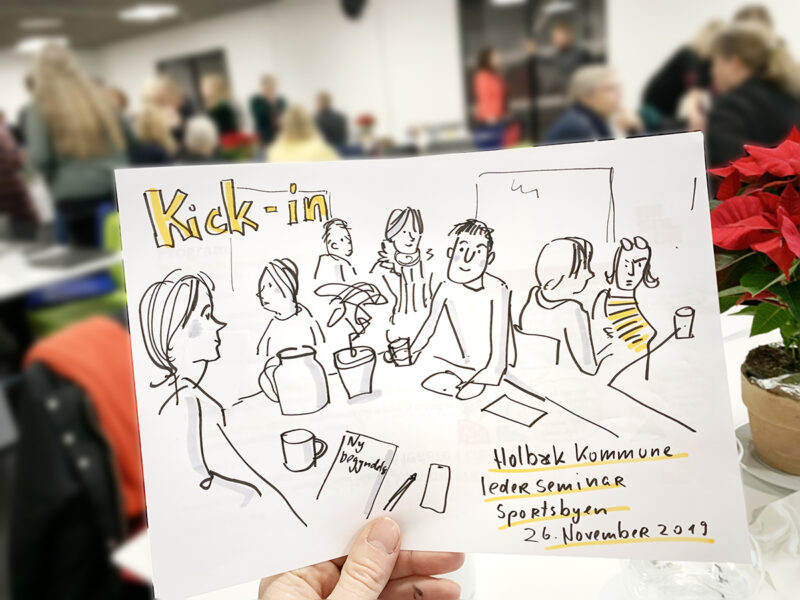 Kick-in
Ny
begyndels
Holbæk Kommune
leder seminar
Sportsbyen
26. November 2019